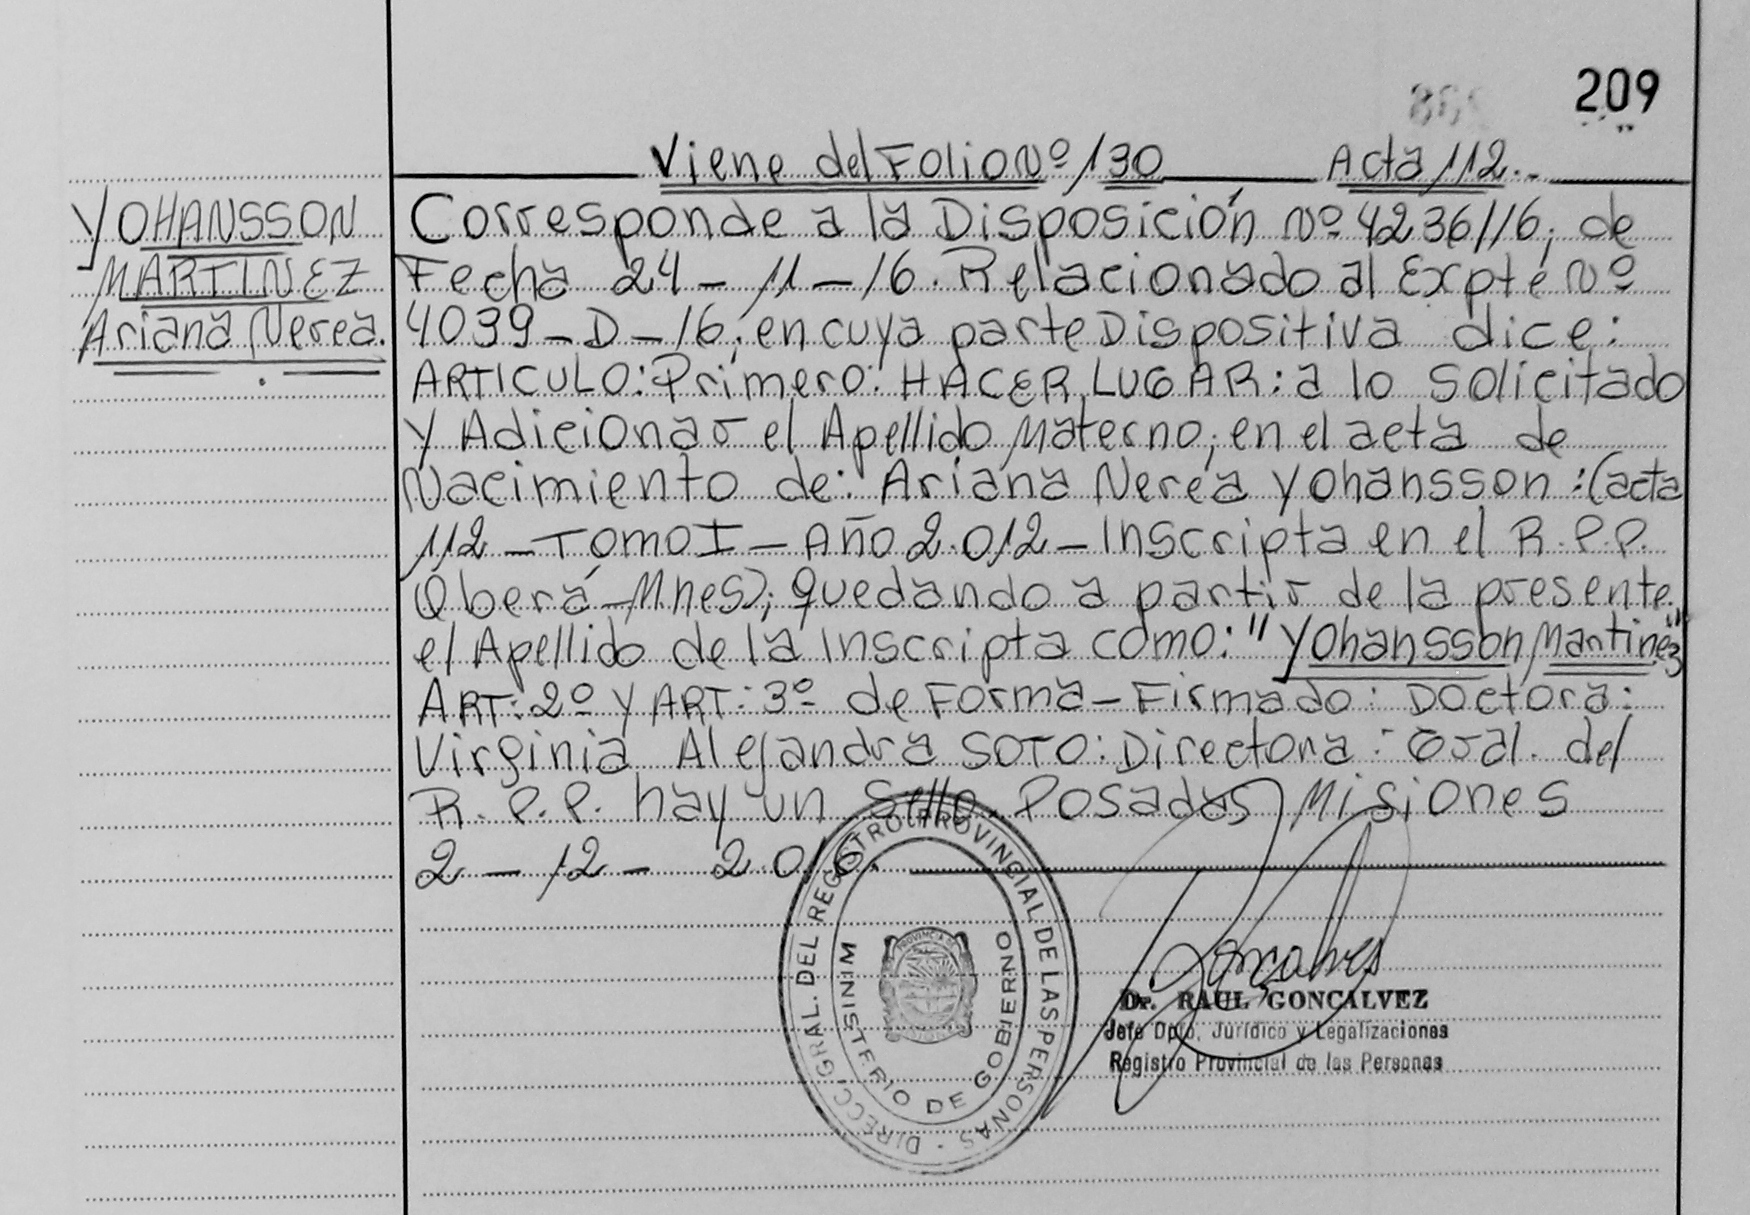 209
Viene del Folio Nº 130 Acta 112.-
YOHANSSON
MARTINEZ
Ariana Nerea.
Corresponde a la Disposición Nº 4236/16, de
Fecha 24-11-16. Relacionado al Expte Nº
4039-D-16, en cuya parte Dispositiva dice:
ARTICULO: Primero: HACER LUGAR: a lo solicitado
y Adicionar el Apellido Materno, en el acta de
Nacimiento de: Ariana Nerea Yohansson: (acta
112-Tomo I-Año 2.012-Inscripta en el R.P.P.
Oberá-Mnes), quedando a partir de la presente
el Apellido de la Inscripta como: "Yohansson Martinez"
ART: 2º y ART: 3º de Forma-Firmado: Doctora:
Virginia Alejandra SOTO: Directora: Gral. del
R.P.P. hay un Sello. Posadas Misiones
2-12-2.016.
DIRECC. GRAL. DEL REGISTRO PROVINCIAL DE LAS PERSONAS -
MINISTERIO DE GOBIERNO
PROVINCIA DE
Goncalves
Dr. RAUL GONCALVEZ
Jefe Dpto. Jurídico y Legalizaciones
Registro Provincial de las Personas